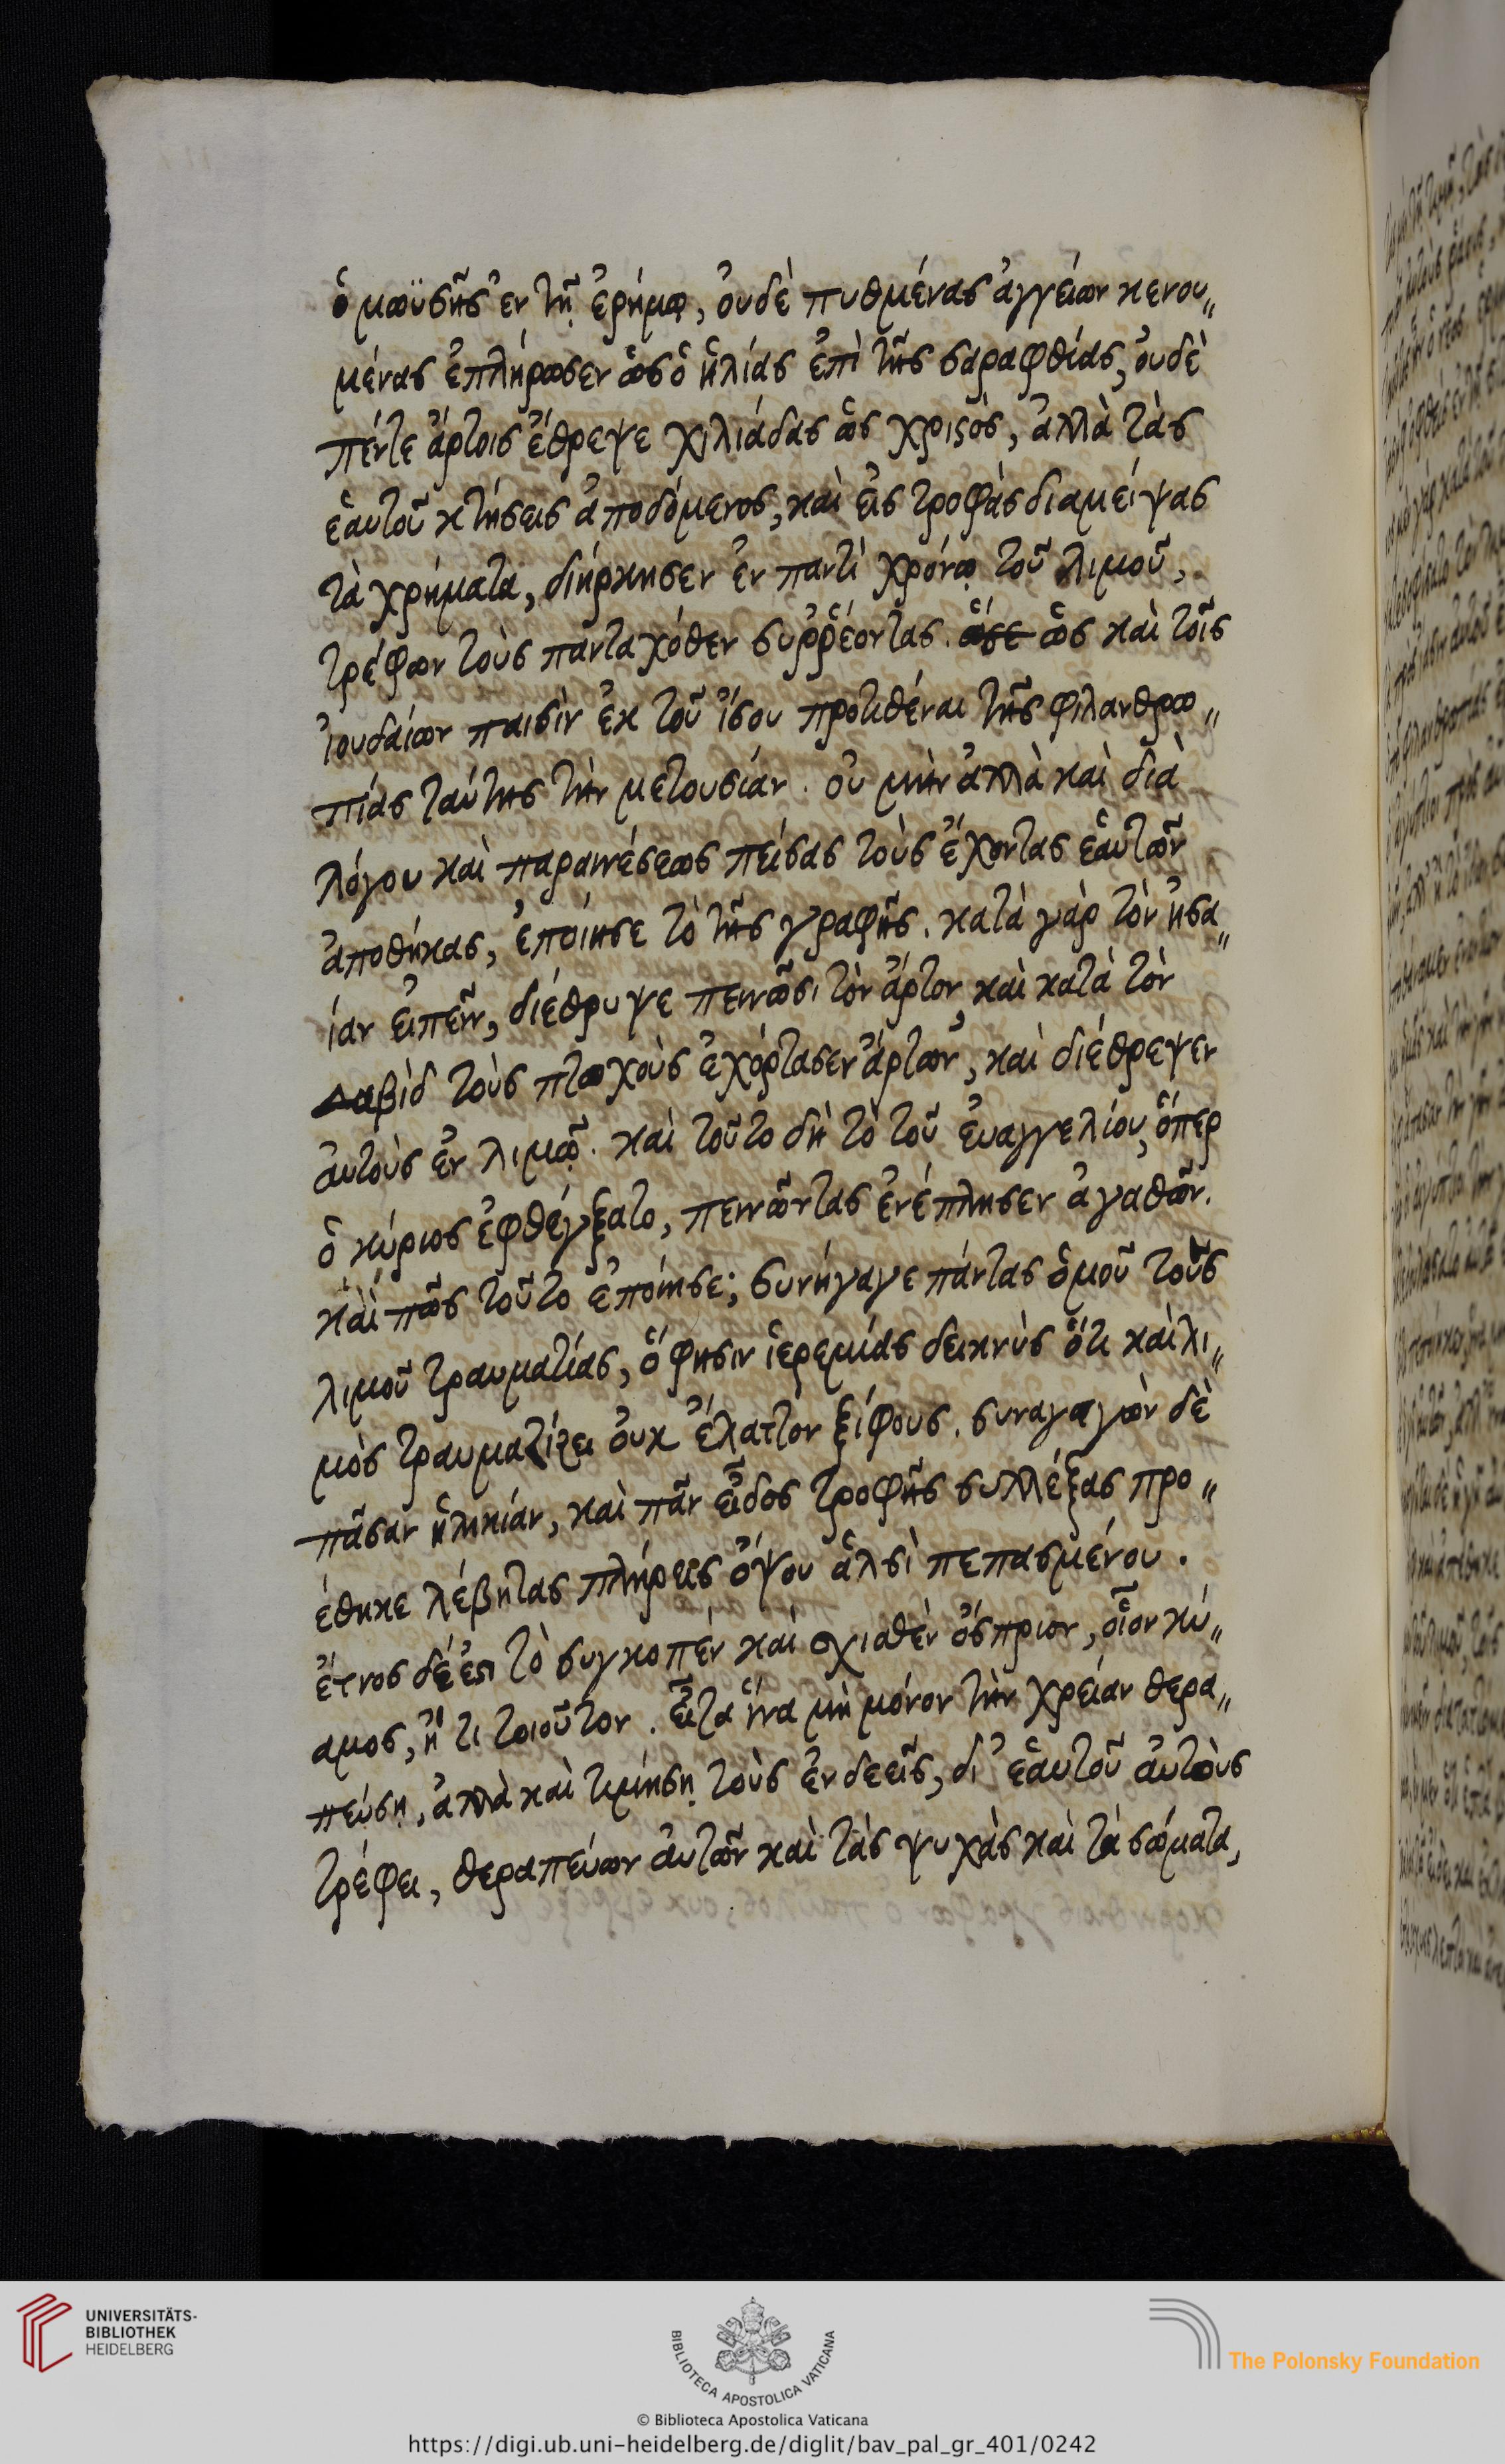 ὁ μωϋσῆς ἐν τῇ ἐρήμῳ, οὐδὲ πυθμένας ἀγγείων κενου„
μένας ἐπλήρωσεν ὡς ὁ ἡλίας ἐπὶ τῆς σαραφθίας, οὐδὲ
πέντε ἄρτοις ἔθρεψε χιλιάδας ὡς χριϛὸς, ἀλλὰ τὰς
ἑαυτοῦ κτήσεις ἀποδόμενος, καὶ εἰς τροφὰς διαμείψας
τὰ χρήματα, διήρκησεν ἐν παντὶ χρόνῳ τοῦ λιμοῦ,
τρέφων τοὺς πανταχόθεν συῤῥέοντας. ὥϛε ὡς καὶ τοῖς
ἰουδαίων παισὶν ἐκ τοῦ ἴσου προτιθέναι τῆς φιλανθρω„
πίας ταύτης τὴν μετουσίαν. οὐ μὴν ἀλλὰ καὶ διὰ
λόγου καὶ παραινέσεως πείσας τοὺς ἔχοντας ἑαυτῶν
ἀποθήκας, ἐποίησε τὸ τῆς γραφῆς. κατὰ γὰρ τὸν ἡσα„
ίαν εἰπεῖν, διέθρυψε πεινῶσι τὸν ἄρτον, καὶ κατὰ τὸν
Δαβὶδ τοὺς πτωχοὺς ἐχόρτασεν ἄρτων, καὶ διέθρεψεν
αὐτοὺς ἐν λιμῷ. καὶ τοῦτο δὴ τὸ τοῦ εὐαγγελίου, ὅπερ
ὁ κύριος ἐφθέγξατο, πεινῶντας ἐνέπλησεν ἀγαθῶν.
καὶ πῶς τοῦτο ἐποίησε; συνήγαγε πάντας ὁμοῦ τοὺς
λιμοῦ τραυματίας, ὅ φησιν ἱερεμίας δεικνὺς ὅτι καὶ λι„
μὸς τραυματίζει οὐκ ἔλαττον ξίφους. συναγαγὼν δὲ
πᾶσαν ἡλικίαν, καὶ πᾶν εἶδος τροφῆς συλλέξας προ„
έθηκε λέβητας πλήρεις ὄψου ἁλσὶ πεπασμένου.
ἔτνος δέ ἐϛι τὸ συγκοπὲν καὶ σχιαθὲν ὄσπριον, οἷον κύ„
αμος, ἤ τι τοιοῦτον. εἶτα ἵνα μὴ μόνον τὴν χρείαν θερα„
πεύσῃ, ἀλλὰ καὶ τιμήσῃ τοὺς ἐνδεεῖς, δι' ἑαυτοῦ αὐτοὺς
τρέφει, θεραπεύων αὐτῶν καὶ τὰς ψυχὰς καὶ τὰ σώματα,
UNIVERSITÄTS-
BIBLIOTHEK
HEIDELBERG
BIBLIOTECA APOSTOLICA VATICANA
The Polonsky Foundation
© Biblioteca Apostolica Vaticana
https://digi.ub.uni-heidelberg.de/diglit/bav_pal_gr_401/0242